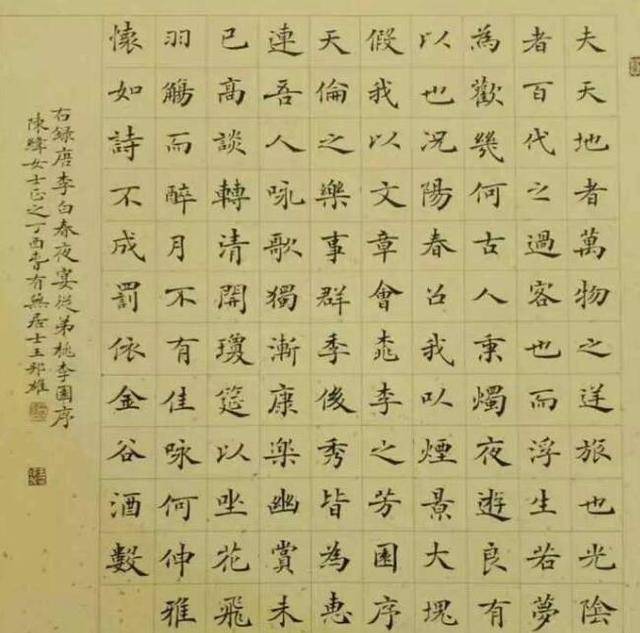 夫天地者萬物之逆旅也光陰
者百代之過客也而浮生若夢
為歡幾何古人秉燭夜遊良有
以也况陽春召我以煙景大塊
假我以文章會桃李之芳園序
天倫之樂事群季俊秀皆為惠
連吾人咏歌獨漸康樂幽賞未
已高談轉清開瓊筵以坐花飛
羽觴而醉月不有佳咏何伸雅
懷如詩不成罰依金谷酒數
右録唐李白春夜宴從弟桃李園序
陳緯女士正之丁酉春有無居士王邦雄